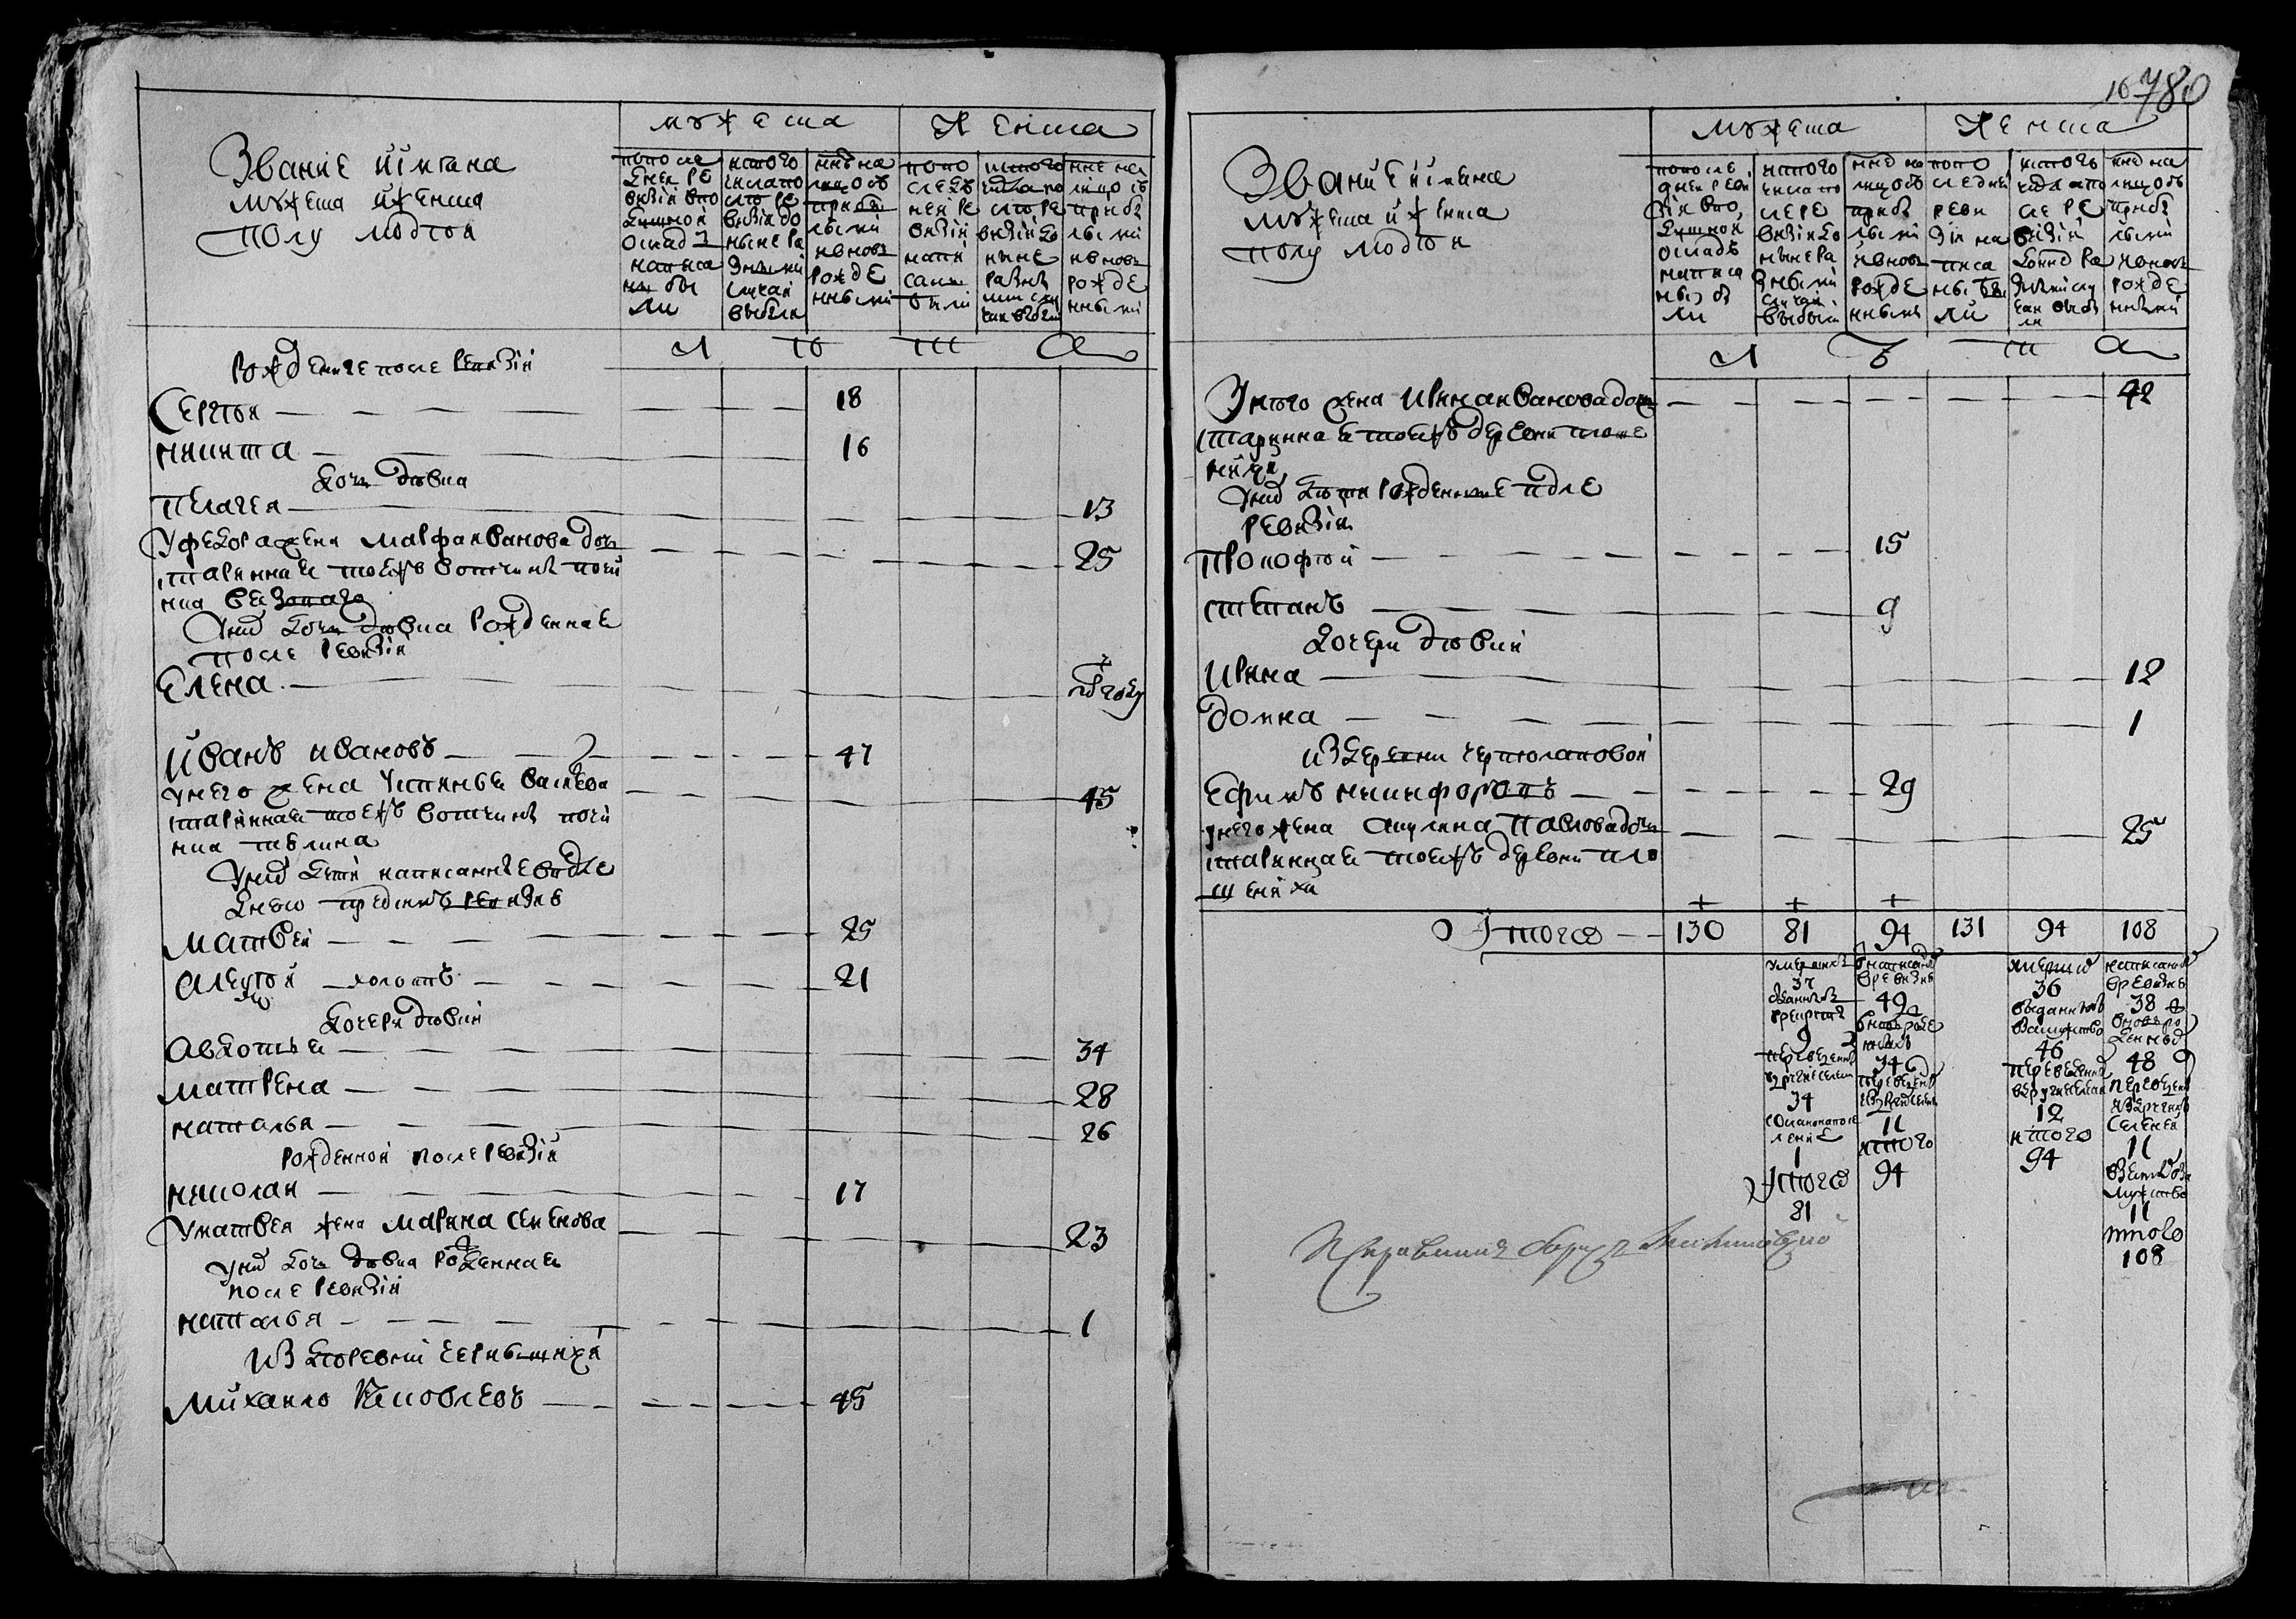 Звание и имяна
мужеска и женска
полу людей
мужеска
женска
по по сле
дней ре
визии в по
душной
оклад
написа
ны бы
ли
ис того
числа по
сле ре
визии до
ныне ра
зными
случаи
выбыли
ныне на
лицо с
прибы
лыми
и вновь
рожде
нными
по по
следъ
ней ре
визии
напи
саны
были
ис того
числа по
сле ре
визии до
ныне
разны
ми слу
чаи выбыли
ныне на
лицо съ
прибы
лыми
и вновь
рожде
нными
Л Ѣ Т А
рожденные после ревизии
Сергей 18
никита 16
дочь девка
Пелагея 13
У федора жена марфа иванова дочь 25
старинная тоежъ вотчины почи
нка
у ней дочь девка рожденная
после ревизии
Елена
Иванъ ивановъ 47
у него жена Устинья василева 45
стариная тоежъ вотчины почи
нка
у ней дети написанные в подле
днею пред симъ ревизию
матвей 25
алексей холостъ 21
дочери девки
Авдотья 34
матрена 28
наталья 26
рожденной после ревизии
николаи 17
У матвея жена марина семенова 23
у ней дочь девка рожденная
после ревизии
наталья 1
из деревни
Михайло Яковлевъ 45
780
Звание и имяна
мужеска и женска
полу людей
мужеска
женска
по после
дней реви
зии в по
душной
окладъ
написа
ны бы
ли
ис того
числа по
сле ре
визии до
ныне ра
зными
случаи
выбыли
ныне на
лицо съ
прибы
лыми
и вновь
рожде
нными
по по
следней
реви
зии на
писа
ны бы
ли
ис того
числа по
сле ре
визии
до ныне ра
зными слу
чаи выбы
ли
ныне на
лицо съ
прибы
лыми
и вновь
рожде
нными
Л Ѣ Т А
У него жена Ирина иванова дочь 42
старинная тоежъ деревни
у ней дети рожденные после
ревизии
Прокофей 15
степанъ 9
дочери девки
Ирина 12
Домна 1
из деревни черполаповой
Ефимъ никифоровъ 29
у него жена акулина Павлова дочь 25
старинная тоежъ деревни пло
щенихи
Итого 130 81 94 131 94 108
умершихъ
37
отданныхъ
в рекруты
9
переведенныхъ
в другие селении
34
1
Итого
81
написанныхъ
в ревизию
49
вновь рожде
нныхъ
34
переведенныхъ
из других селеней
11
итого
94
умершихъ
36
выданныхъ
в замужство
46
переведенныхъ
в другие селении
12
итого
94
написанныхъ
в ревизию
38
вновь ро
жденныхъ
48
переведенныхъ
из другихъ
селеней
11
взятыхъ в за
мужство
11
итого
108